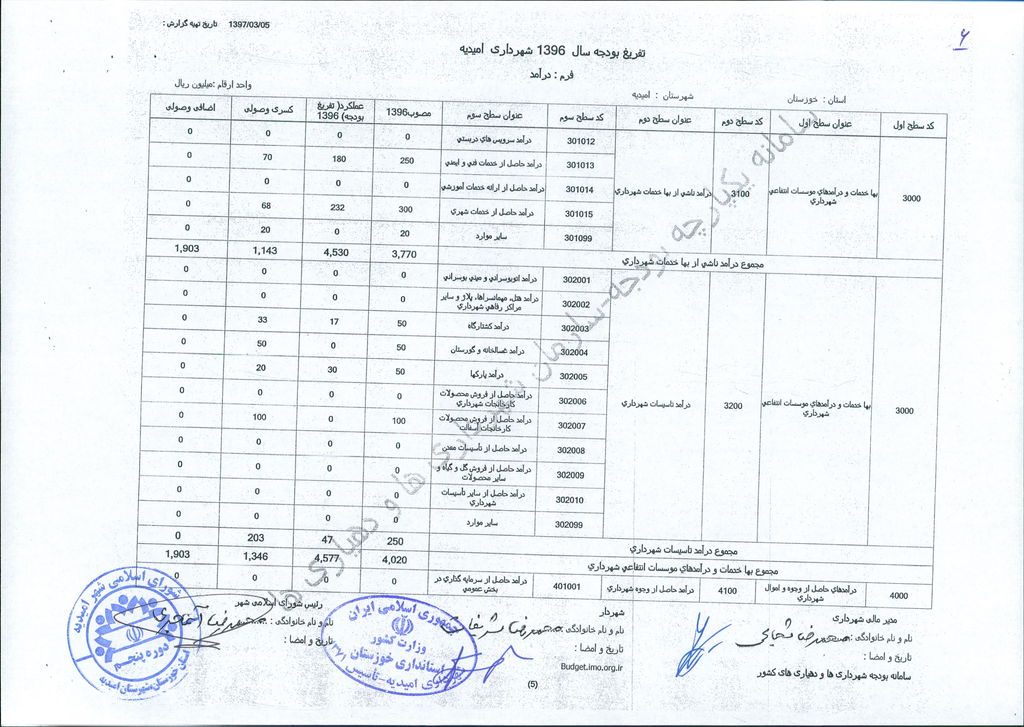 تاریخ تهیه گزارش : 1397/03/05
۶
تفریغ بودجه سال 1396 شهرداری امیدیه
فرم : درآمد
استان : خوزستان شهرستان : امیدیه واحد ارقام :میلیون ریال
کد سطح اول عنوان سطح اول کد سطح دوم عنوان سطح دوم کد سطح سوم عنوان سطح سوم مصوب1396 عملکرد( تفریغ بودجه) 1396 کسری وصولی اضافی وصولی
3000 بها خدمات و درآمدهاي موسسات انتفاعي شهرداري 3100 درآمد ناشي از بها خدمات شهرداري
301012 درآمد سرويس هاي دربستي 0 0 0 0
301013 درآمد حاصل از خدمات فني و ايمني 250 180 70 0
301014 درآمد حاصل از ارائه خدمات آموزشي 0 0 0 0
301015 درآمد حاصل از خدمات شهري 300 232 68 0
301099 ساير موارد 20 0 20 0
مجموع درآمد ناشي از بها خدمات شهرداري 3,770 4,530 1,143 1,903
3000 بها خدمات و درآمدهاي موسسات انتفاعي شهرداري 3200 درآمد تاسيسات شهرداري
302001 درآمد اتوبوسراني و ميني بوسراني 0 0 0 0
302002 درآمد هتل، مهمانسراها، پلاژ و ساير مراكز رفاهي شهرداري 0 0 0 0
302003 درآمد كشتارگاه 50 17 33 0
302004 درآمد غسالخانه و گورستان 50 0 50 0
302005 درآمد پاركها 50 30 20 0
302006 درآمد حاصل از فروش محصولات كارخانجات شهرداري 0 0 0 0
302007 درآمد حاصل از فروش محصولات كارخانجات آسفالت 100 0 100 0
302008 درآمد حاصل از تأسيسات معدن 0 0 0 0
302009 درآمد حاصل از فروش گل و گياه و ساير محصولات 0 0 0 0
302010 درآمد حاصل از ساير تأسيسات شهرداري 0 0 0 0
302099 ساير موارد 0 0 0 0
مجموع درآمد تاسيسات شهرداري 250 47 203 0
مجموع بها خدمات و درآمدهاي موسسات انتفاعي شهرداري 4,020 4,577 1,346 1,903
4000 درآمدهاي حاصل از وجوه و اموال شهرداري 4100 درآمد حاصل از وجوه شهرداري 401001 درآمد حاصل از سرمايه گذاري در بخش عمومي 0 0 0 0
سامانه یکپارچه بودجه-سازمان شهرداری ها و دهیاری ها
مدیر مالی شهرداری
نام و نام خانوادگی :
تاریخ و امضا :
سامانه بودجه شهرداری ها و دهیاری های کشور
شهردار
نام و نام خانوادگی :
تاریخ و امضا :
Budget.imo.org.ir
(5)
رئیس شورای اسلامی شهر
نام و نام خانوادگی :
تاریخ و امضا :
جمهوری اسلامی ایران
وزارت کشور
استانداری خوزستان
شورای اسلامی شهر امیدیه
دوره پنجم
استان خوزستان شهرستان امیدیه